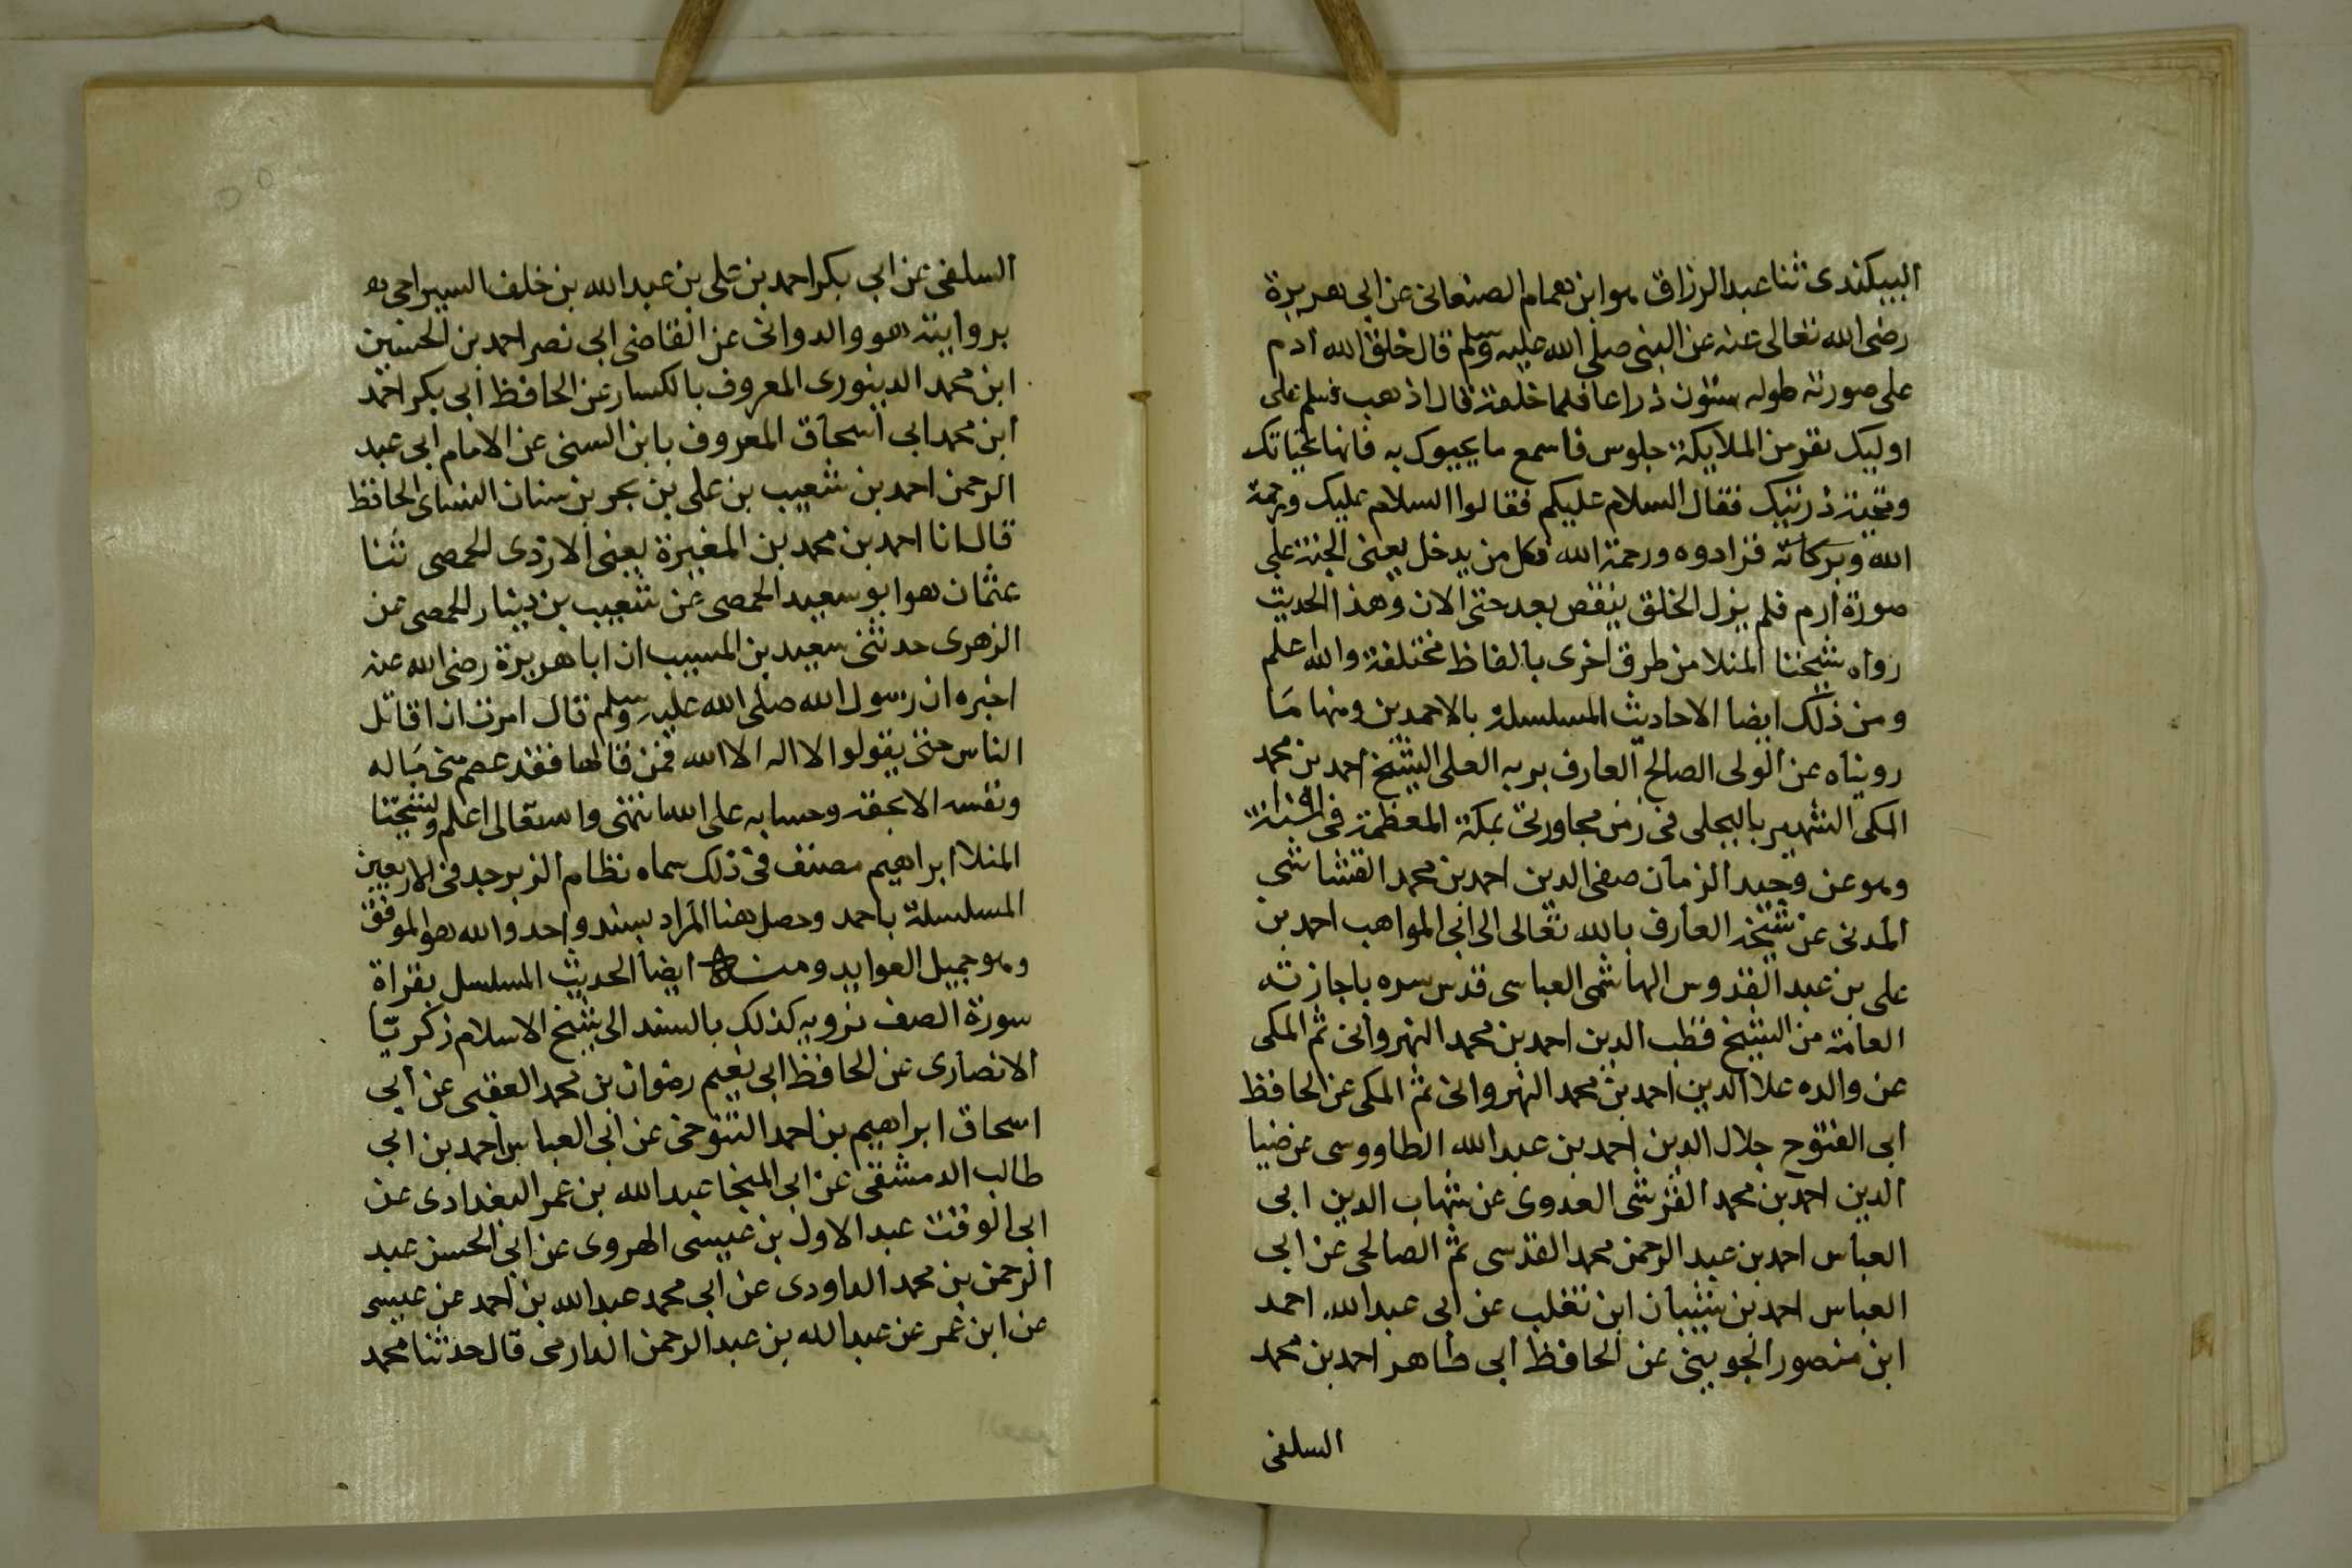 البيكندى ثنا عبد الرزاق هو ابن همام الصنعانى عن ابى هريرة
رضى الله تعالى عنه عن النبى صلى الله عليه وسلم قال خلق الله ادم
على صورته طوله ستون ذراعا فلما خلقه قال اذهب فسلم على
اوليك نفر من الملايكة جلوس فاسمع ما يحيوك به فانها تحياتك
وتحية ذريتك فقال السلام عليكم فقالوا السلام عليك ورحمة
الله وبركاته فزادوه ورحمة الله فكل من يدخل يعنى الجنة على
صورة ادم فلم يزل الخلق ينقص بعد حتى الان وهذا الحديث
رواه شيخنا المنلا من طرق اخرى بالفاظ مختلفة والله اعلم
ومن ذلك ايضا الاحاديث المسلسلة بالاحمدين ومنها ما
رويناه عن الولى الصالح العارف بربه العلى الشيخ احمد بن محمد
المكى الشهير بالبجلى فى زمن مجاورتى بمكة المعظمة فى
وهو عن وحيد الزمان صفى الدين احمد بن محمد القشاشى
المدنى عن شيخه العارف بالله تعالى الى ابى المواهب احمد بن
على بن عبد القدوس الهاشمى العباسى قدس سره باجازته
العامة من الشيخ قطب الدين احمد بن محمد النهروانى ثم المكى
عن والده علا الدين احمد بن محمد النهروانى ثم المكى عن الحافظ
ابى الفتوح جلال الدين احمد بن عبد الله الطاووسى عن ضيا
الدين احمد بن محمد القرشى العدوى عن شهاب الدين ابى
العباس احمد بن عبد الرحمن محمد القدسى ثم الصالحى عن ابى
العباس احمد بن شيبان ابن تغلب عن ابى عبد الله احمد
ابن منصور الجوينى عن الحافظ ابى طاهر احمد بن محمد
السلفى
السلفى عن ابى بكر احمد بن على بن عبد الله بن خلف السيراجى
بروايته هو والدوانى عن القاضى ابى نصر احمد بن الحسين
ابن محمد الدينورى المعروف بالكسار عن الحافظ ابى بكر احمد
ابن محمد ابى اسحاق المعروف بابن السنى عن الامام ابى عبد
الرحمن احمد بن شعيب بن على بن بحر بن سنان النساى الحافظ
قال انا احمد بن محمد بن المغيرة يعنى الازدى الحمصى ثنا
عثمان هو ابو سعيد الحمصى عن شعيب بن دينار الحمصى عن
الزهرى حدثنى سعيد بن المسيب ان ابا هريرة رضى الله عنه
اخبره ان رسول الله صلى الله عليه وسلم قال امرت ان اقاتل
الناس حتى يقولوا لا اله الا الله فمن قالها فقد عصم منى ماله
ونفسه الا بحقه وحسابه على الله انتهى والله تعالى اعلم ولشيخنا
المنلا ابراهيم مصنف فى ذلك سماه نظام الزبرجد فى الاربعين
المسلسلة باحمد وحصل هنا المراد بسند واحد والله هو الموفق
وهو جميل العوايد ومن ايضا الحديث المسلسل بقراة
سورة الصف نرويه كذلك بالسند الى شيخ الاسلام زكريا
الانصارى عن الحافظ ابى نعيم رضوان بن محمد العقبى عن ابى
اسحاق ابراهيم بن احمد التنوخى عن ابى العباس احمد بن ابى
طالب الدمشقى عن ابى المنجا عبد الله بن عمر البغدادى عن
ابى الوقت عبد الاول بن عيسى الهروى عن ابى الحسن عبد
الرحمن بن محمد الداودى عن ابى محمد عبد الله بن احمد عن عيسى
عن ابن عمر عن عبد الله بن عبد الرحمن الدارمى قال حدثنا محمد